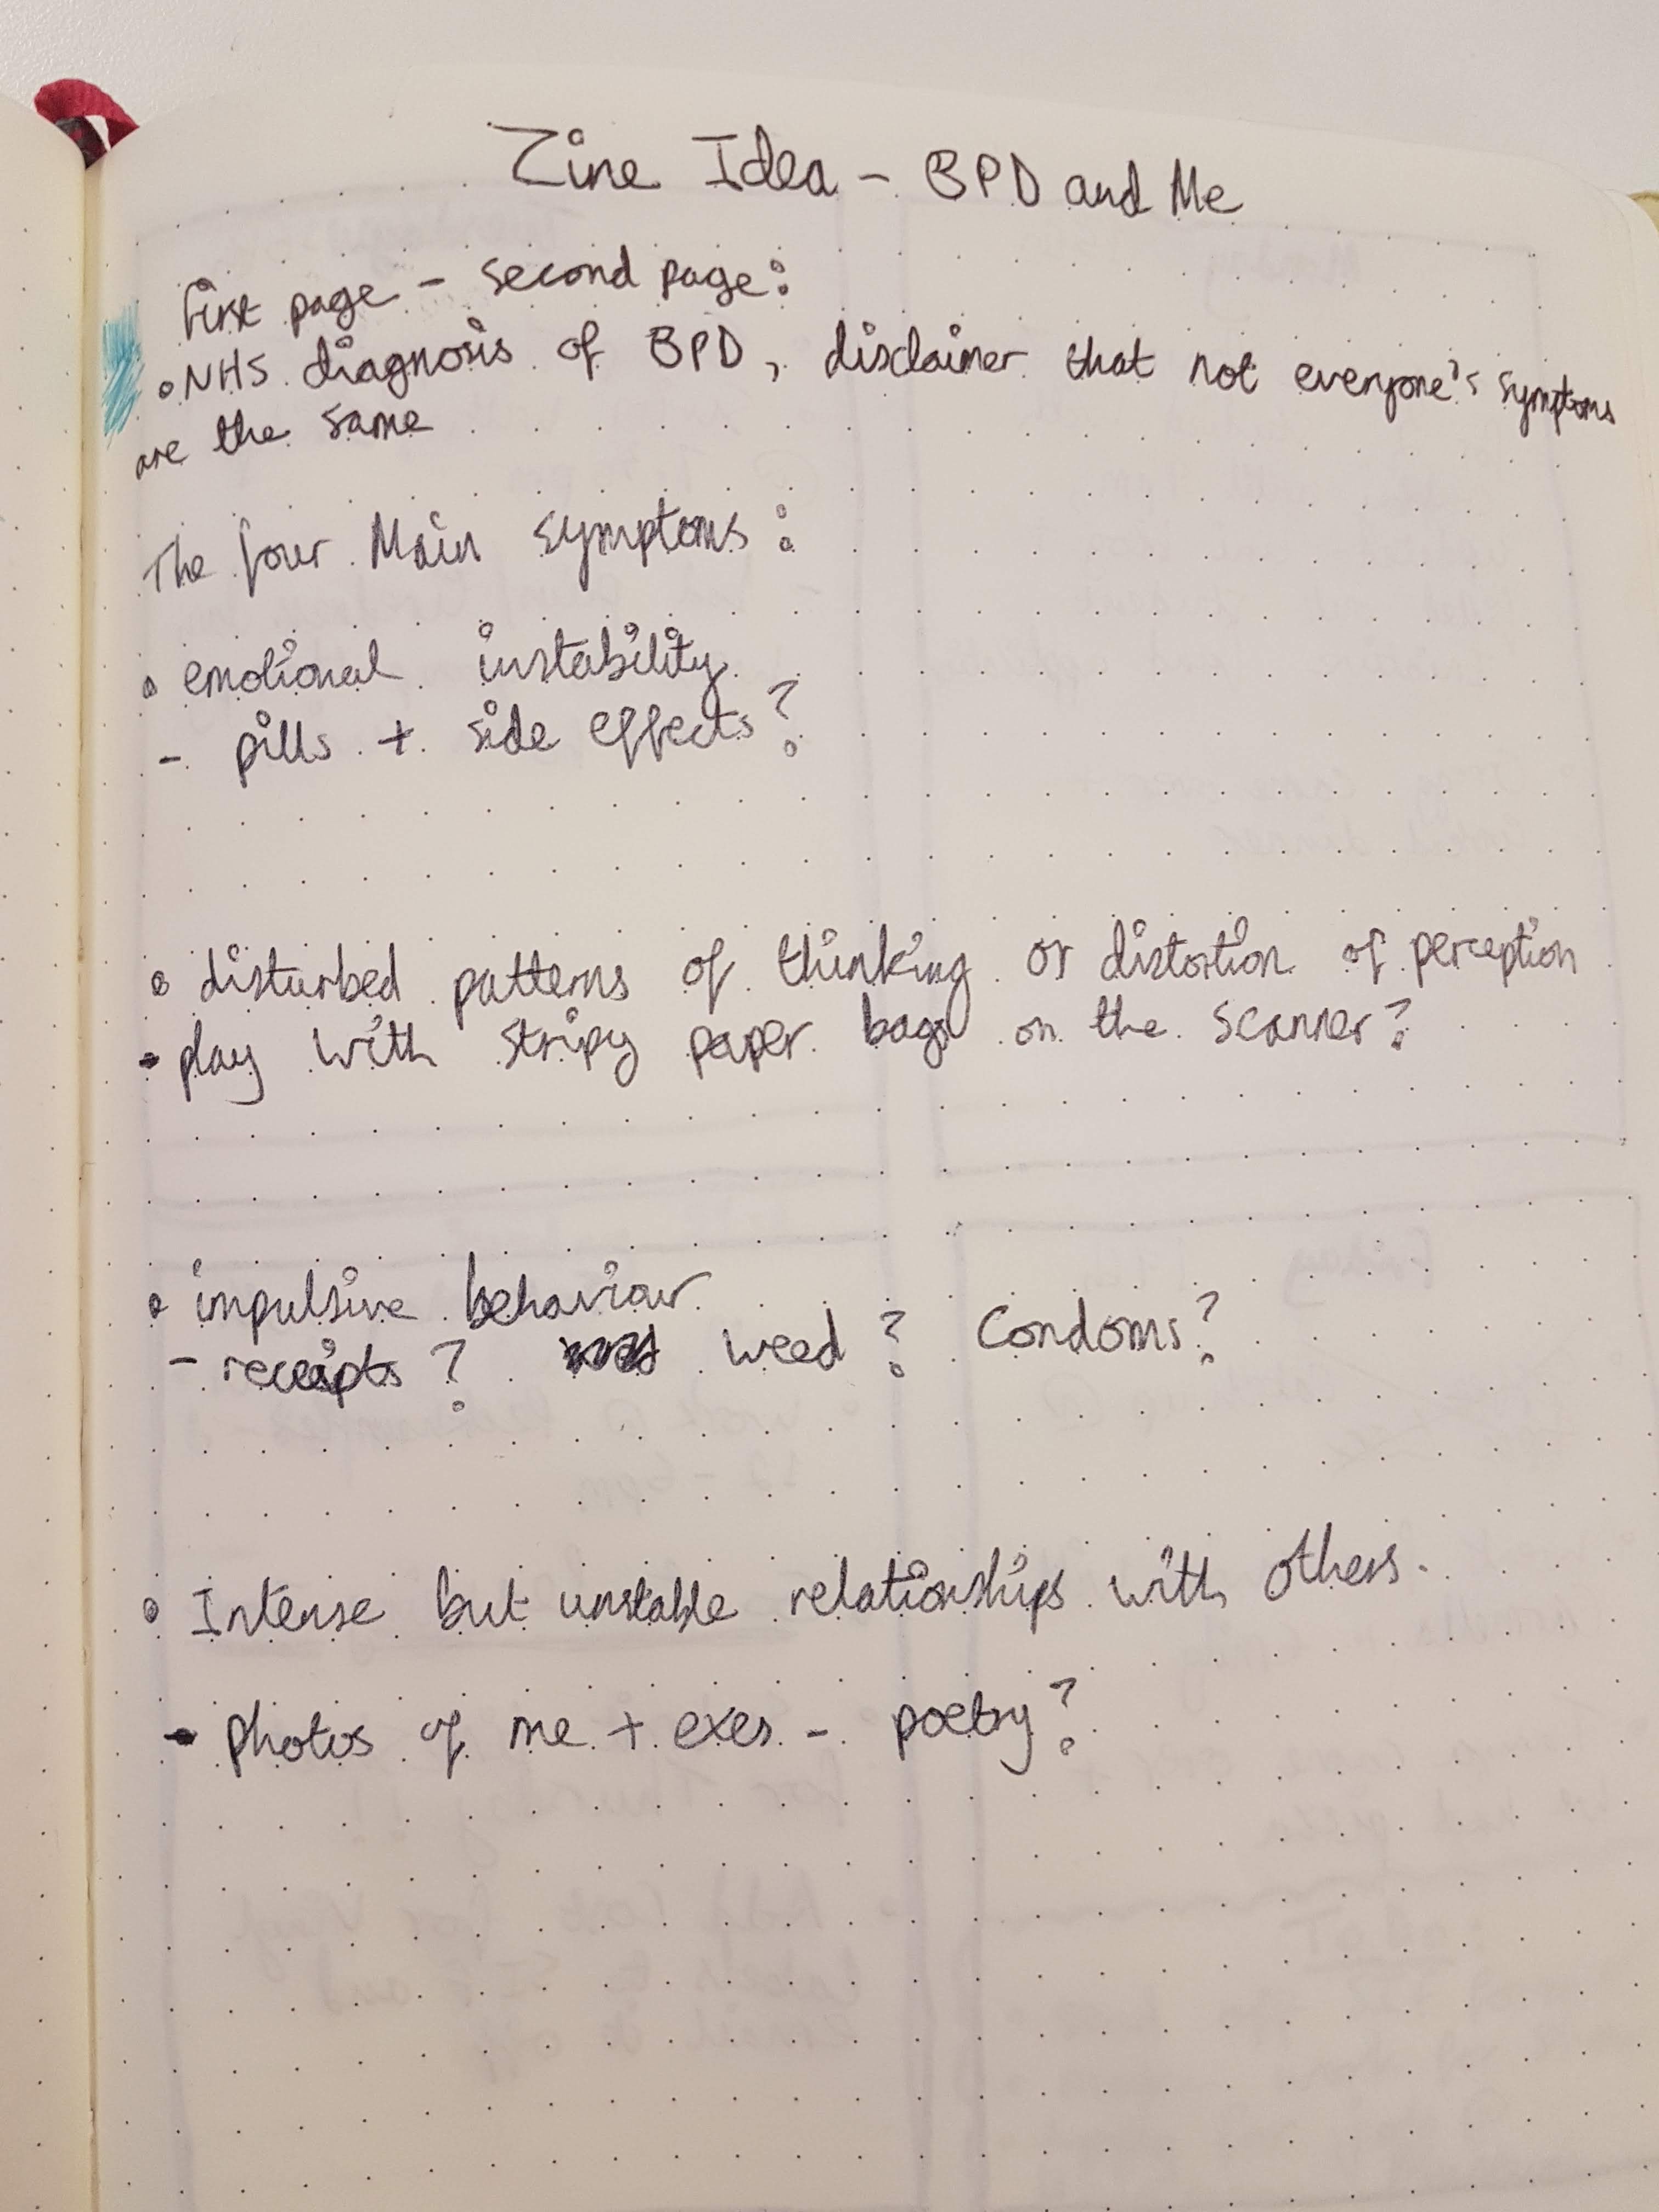 Zine Idea - BPD and Me
First page - second page:
• NHS diagnosis of BPD, disclaimer that not everyone's symptoms
are the same
The four Main symptoms:
• emotional instability
- pills + side effects?
• disturbed patterns of thinking or distortion of perception
- play with stripy paper bags on the scanner?
• impulsive behaviour
- receipts? weed? Condoms?
• Intense but unstable relationships with others.
- photos of me + exes - poetry?